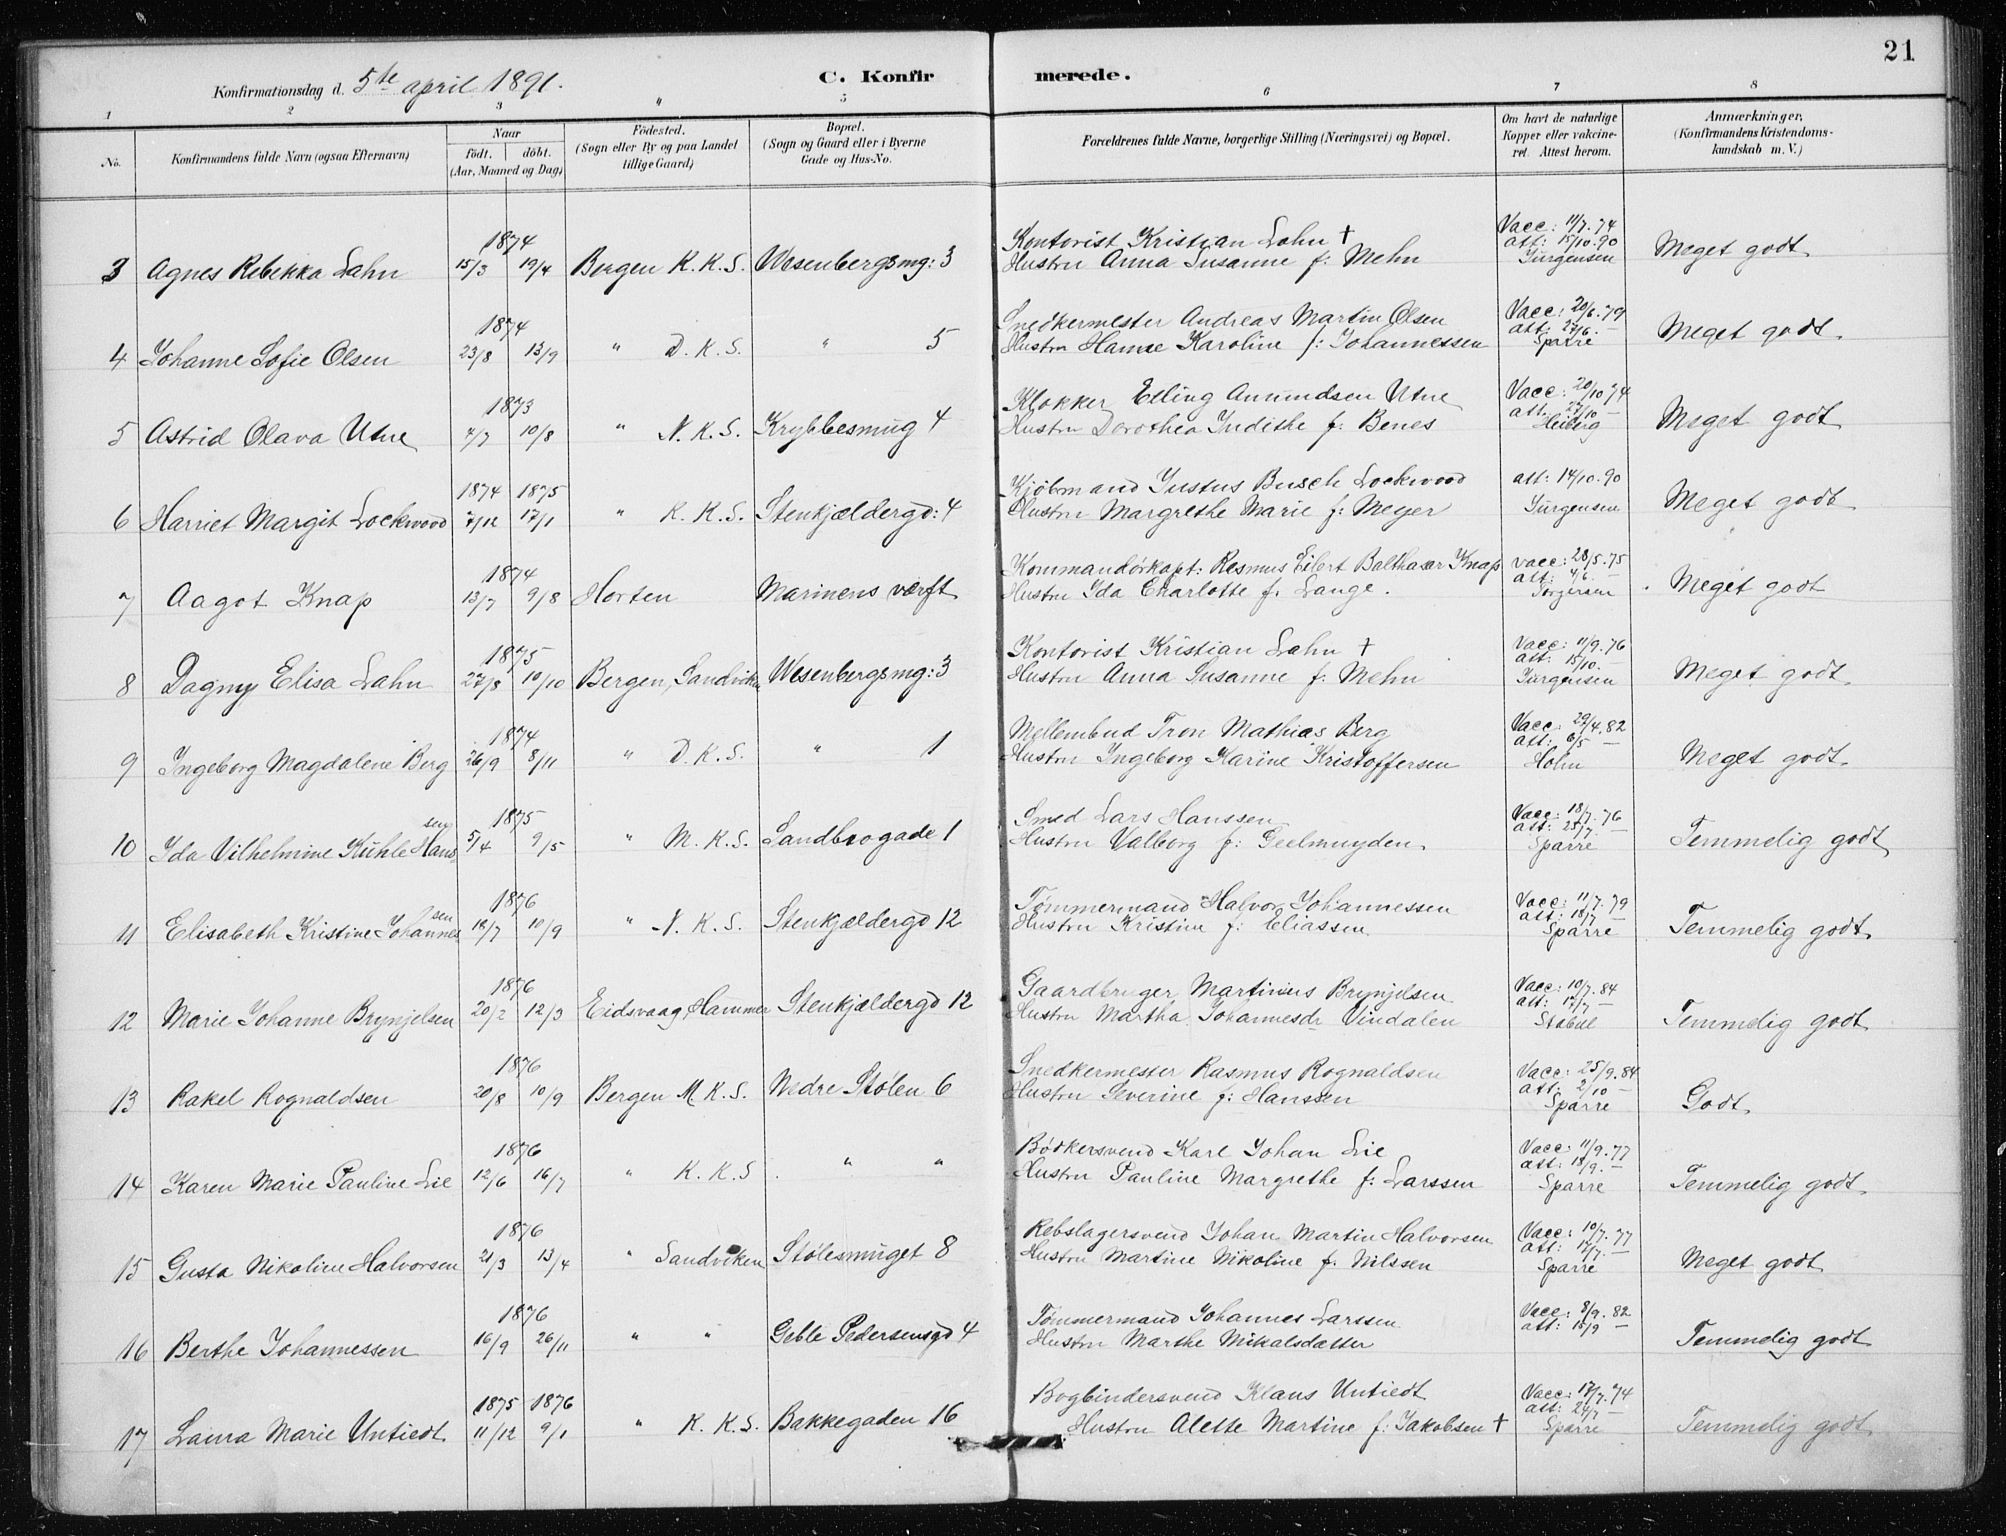 21
Konfirmationsdag d. 5te april 1891.
C. Konfirmerede.
1 2 3 " 5 6 7 8
No.
Konfirmandens fulde Navn (ogsaa Efternavn)
Naar
født. døbt.
(Aar, Maaned og Dag)
Födested.
(Sogn eller By og paa Landet
tillige Gaard)
Bopæl.
(Sogn og Gaard eller i Byerne
Gade og Hus-No.
Forældrenes fulde Navne, borgerlige Stilling (Næringsvei) og Bopæl.
Om havt de naturlige
Kopper eller vakcine-
ret. Attest herom.
Anmærkninger,
(Konfirmandens Kristendoms-
kundskab m. V.)
1874
3 Agnes Rebekka Lahn 15/3 19/4 Bergen K. K. S. Wesenbergsmg: 3
Kontorist Kristian Lahn †
Hustru Anna Susanne f: Mehn
Vacc: 11/7.74
att: 15/10.90
Jürgensen
Meget godt
1874
4 Johanne Sofie Olsen 23/8 13/9 " D. K. S. " 5
Snedkermester Andreas Martin Olsen
Hustru Hanne Karoline f: Johannessen
Vacc: 20/6.79
att: 27/6. —
Sparre
Meget godt.
1873
5 Astrid Olava Utne 4/7 10/8 " N. K. S. Krybbesmug 4
Klokker Elling Amundsen Utne
Hustru Dorothea Judithe f: Benes
Vacc: 20/10 74
att: 27/10 —
Heiberg
Meget godt
1874 1875
6 Harriet Margit Lockwood 7/12 17/1 " K. K. S. Stenkjældergd: 4
Kjöbmand Justus Busch Lockwood
Hustru Margrethe Marie f: Meyer
att: 14/10.90
Jürgensen
Meget godt
1874
7 Aagot Knap 13/7 9/8 Horten Marinens værft
Kommandörkapt: Rasmus Eilert Balthazar Knap
Hustru Ida Charlotte f. Lange.
vacc: 28/5.75
att: 4/6. —
Torgersen
Meget godt
1875
8 Dagny Elisa Lahn 27/8 10/10 Bergen, Sandviken Wesenbergsmg: 3
Kontorist Kristian Lahn †
Hustru Anna Susanne f: Mehn
Vacc: 11/9.76
att: 15/10. —
Jürgensen
Meget godt.
1874
9 Ingeborg Magdalene Berg 26/9 8/11 " D. K. S. " 1
Mellembud Tron Mathias Berg
Hustru Ingeborg Karine Kristoffersen
Vacc: 29/4.82
att: 6/5 —
Holm
Meget godt.
1875
10 Ida Vilhelmine Kühle Hanssen 5/4 9/5 " M. K. S. Sandbrogade 1
Smed Lars Hanssen
Hustru Valborg f: Geelmuyden.
Vacc: 18/7.76
att: 25/7. —
Sparre
Temmelig godt
1876
11 Elisabeth Kristine Johannessen 18/7 10/9 " N. K. S. Stenkjældergd 12
Tømmermand Halvor Johannessen
Hustru Kristine f: Eliassen
Vacc: 11/7.79
att: 18/7 —
Sparre
Temmelig godt.
1876
12 Marie Johanne Brynjelsen 20/2 12/3 Eidsvaag, Hammer Stenkjældergd 12
Gaardbruger Martinus Brynjelsen
Hustru Martha Johannesdr Vindalen
Vacc: 10/7.84
att: 17/7 —
Stabel
Temmelig godt
1876
13 Rakel Rognaldsen 20/8 10/9 Bergen M. K. S. Nedre Stølen 6
Snedkermester Rasmus Rognaldsen
Hustru Severine f: Hanssen
Vacc: 25/9.84
att: 2/10 —
Sparre
Godt.
1876
14 Karen Marie Pauline Lie 12/6 16/7 " K. K. S " "
Bödkersvend Karl Johan Lie
Hustru Pauline Margrethe f: Larssen
Vacc: 11/9.77
att: 18/9. —
Sparre
Temmelig godt.
1876
15 Gusta Nikoline Halvorsen 21/3 13/4 " Sandviken Stølesmuget 8
Rebslagersvend Johan Martin Halvorsen
Hustru Martine Nikoline f. Nilssen
Vacc: 10/7.77
att: 17/7. —
Sparre
Meget godt
1876
16 Berthe Johannessen 16/9 26/11 " " Geble Pedersensgd 4
Tømmermand Johannes Larssen
Hustru Marthe Mikalsdatter
Vacc: 8/9.82
att: 15/9 —
Temmelig godt
1875 1876
17 Laura Marie Untiedt 11/12 9/1 " K. K. S. Bakkegaden 16
Bogbindersvend Klaus Untiedt
Hustru Alette Martine f. Jakobsen †
Vacc: 17/7.74
att: 24/7 —
Sparre
Temmelig godt.